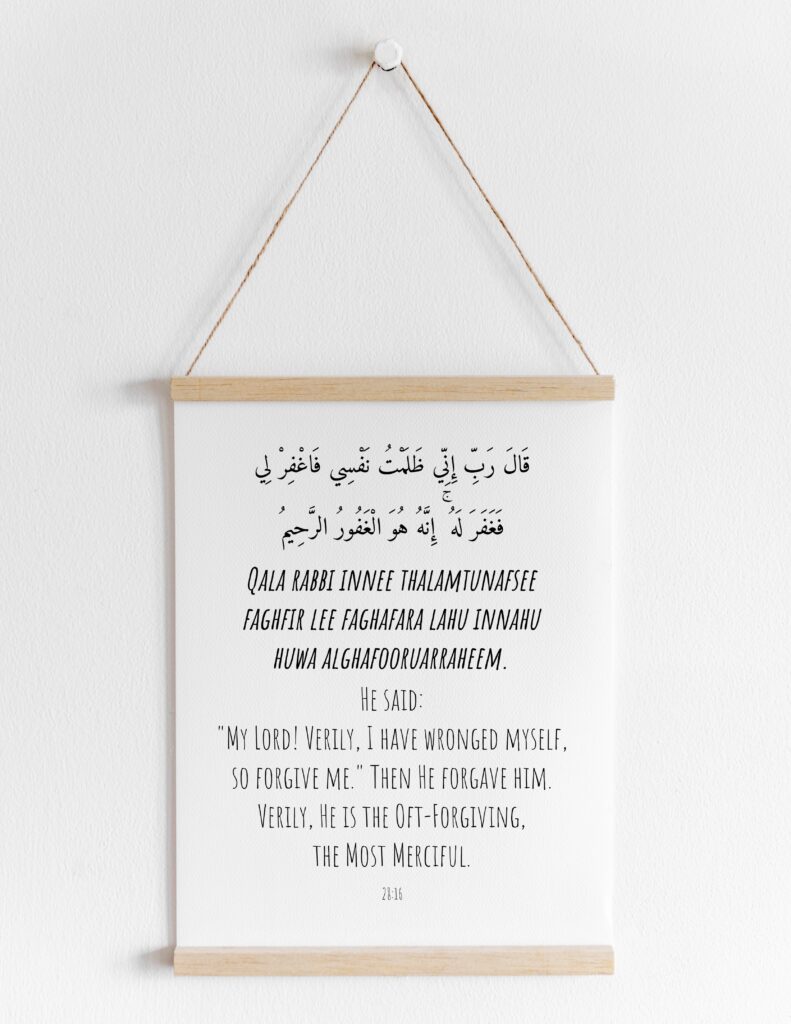 قَالَ رَبِّ إِنِّي ظَلَمْتُ نَفْسِي فَاغْفِرْ لِي
فَغَفَرَ لَهُ ۚ إِنَّهُ هُوَ الْغَفُورُ الرَّحِيمُ
Qala rabbi innee thalamtunafsee
faghfir lee faghafara lahu innahu
huwa alghafooruarraheem.
He said:
"My Lord! Verily, I have wronged myself,
so forgive me." Then He forgave him.
Verily, He is the Oft-Forgiving,
the Most Merciful.
28:16